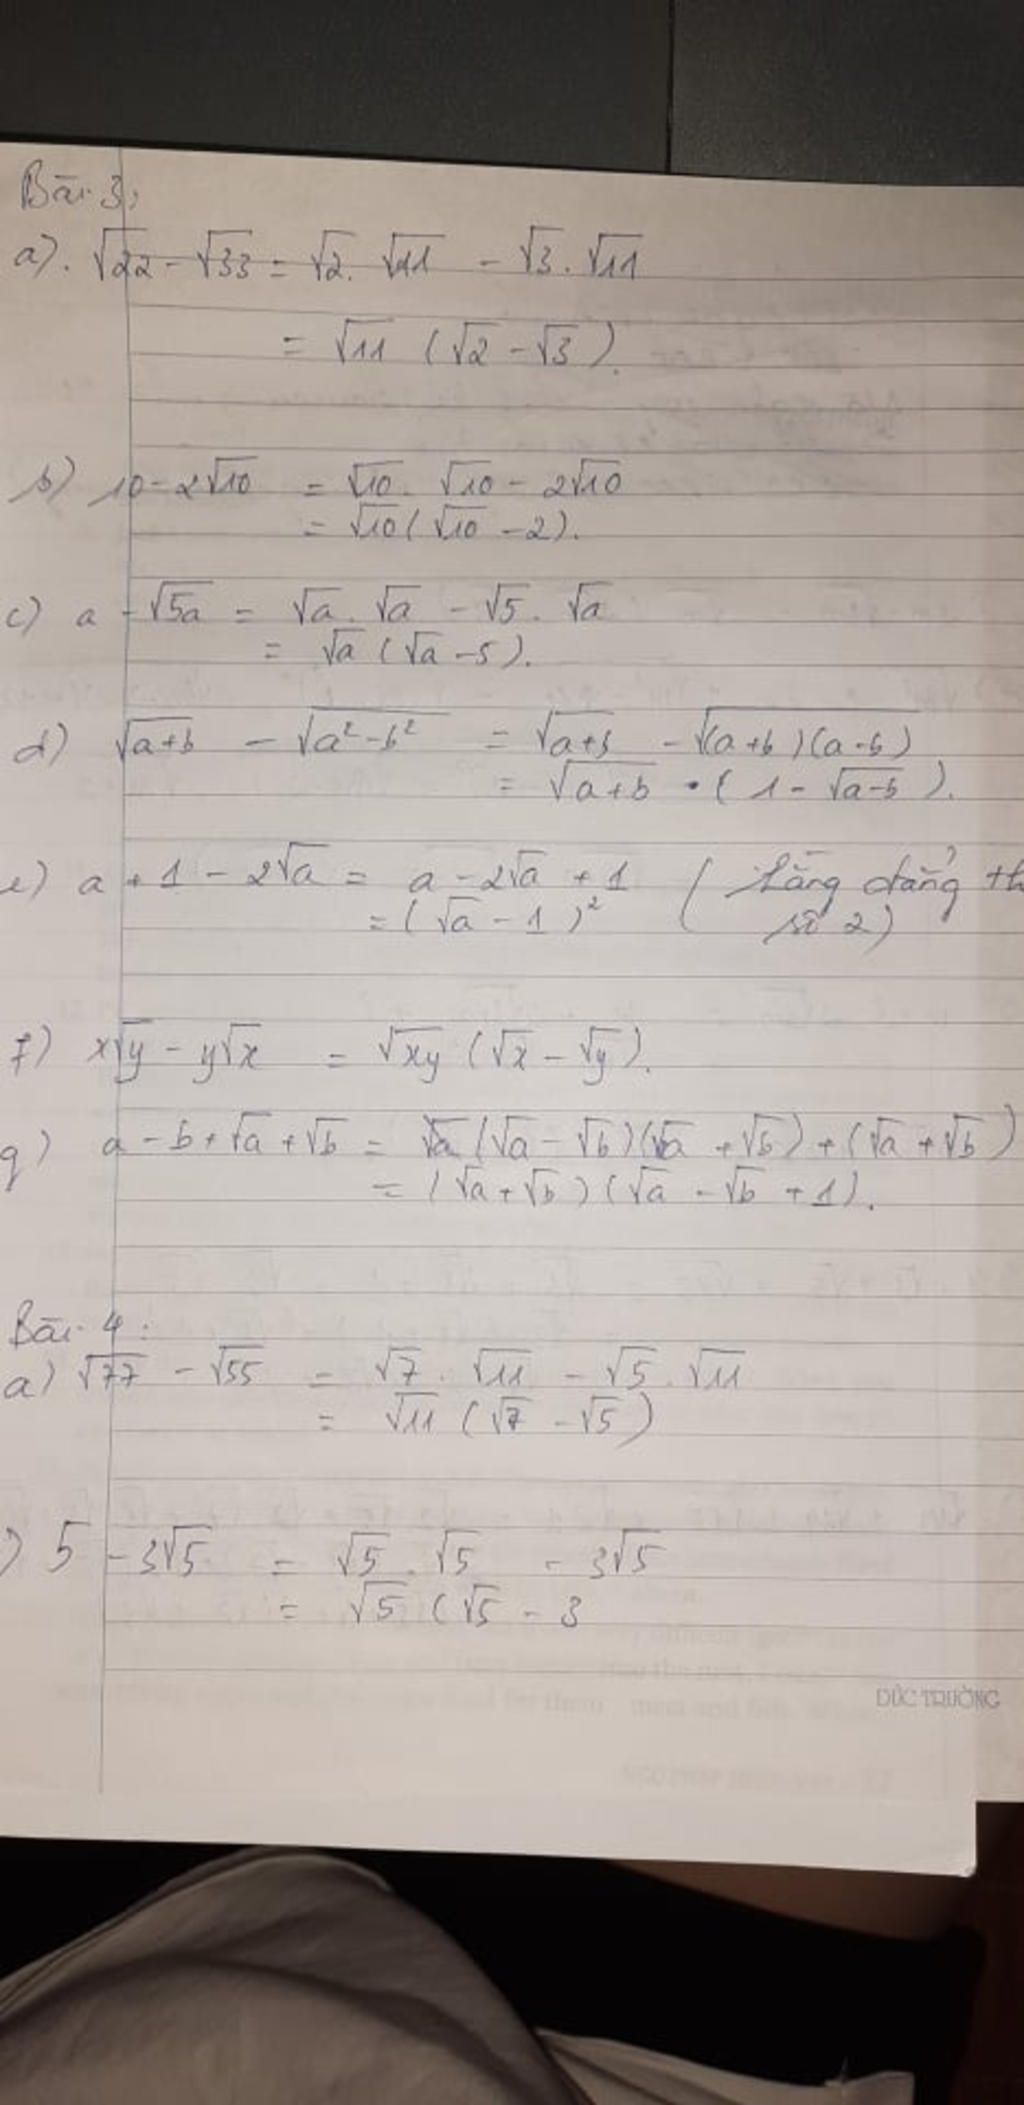 Bài 3:
a). √22 - √33 = √2. √11 - √3. √11
= √11 (√2 - √3).
b) 10 - 2√10 = √10. √10 - 2√10
= √10 (√10 - 2).
c) a - √5a = √a. √a - √5. √a
= √a (√a - 5).
d) √a+b - √a²-b² = √a+b - √(a+b)(a-b)
= √a+b . (1 - √a-b).
e) a + 1 - 2√a = a - 2√a + 1 ( hằng đẳng th
= (√a - 1)² số 2)
f) x√y - y√x = √xy (√x - √y).
g) a - b + √a + √b = (√a - √b)(√a + √b) + (√a + √b)
= (√a + √b)(√a - √b + 1).
Bài 4:
a) √77 - √55 = √7. √11 - √5. √11
= √11 (√7 - √5)
) 5 - 3√5 = √5. √5 - 3√5
= √5 (√5 - 3
ĐỨC TRƯỜNG